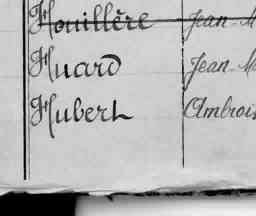 Houillère Jean-M
Huard Jean-M
Hubert Ambrois